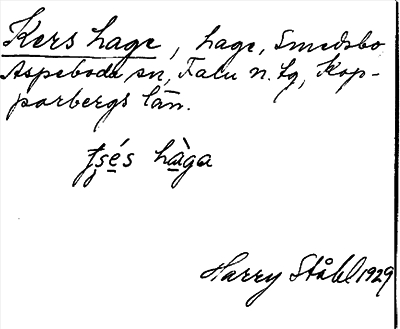 Kers hage, hage, Smedsbo
Aspeboda sn, Falu n. tg, Kop-
parbergs län.
hàga
Harry Ståhl 1929